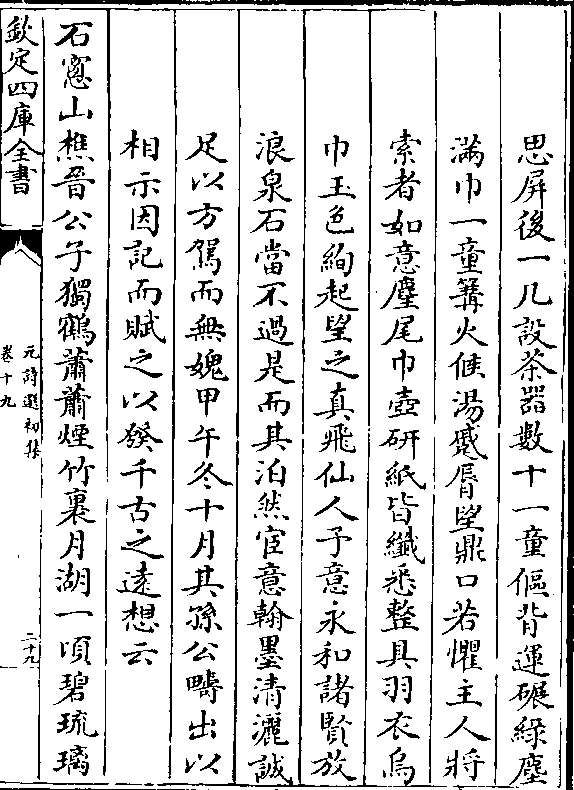 思屏後一几設茶器數十一童傴背運碾綠塵
滿巾一童篝火候湯蹙唇望鼎口若懼主人將
索者如意麈尾巾壺研紙皆纖悉整具羽衣烏
巾玉色絢起望之真飛仙人予意永和諸賢放
浪泉石當不過是而其泊然宦意翰墨清灑誠
足以方駕而無媿甲午冬十月其孫公疇出以
相示因記而賦之以發千古之遠想云
石窻山樵晉公子獨鶴蕭蕭煙竹裏月湖一頃碧琉璃
欽定四庫全書
元詩選初集
卷十九
二十九